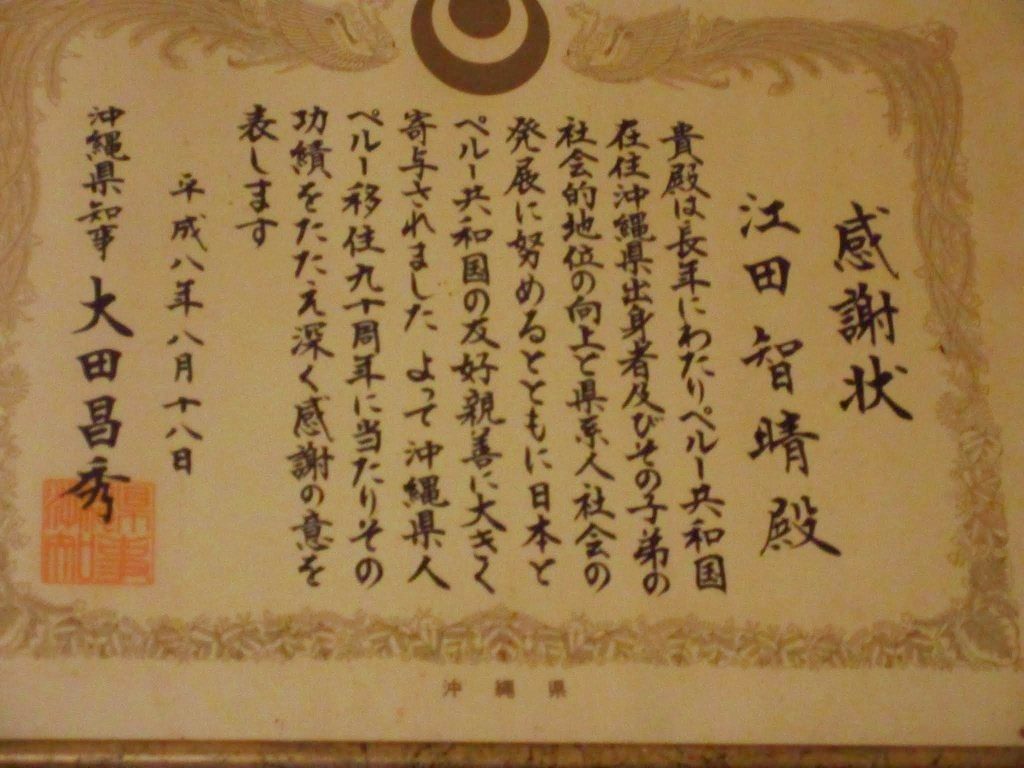 感謝状
江田智晴殿
貴殿は長年にわたりペルー共和国
在住沖縄県出身者及びその子弟の
社会的地位の向上と県系人社会の
発展に努めるとともに日本と
ペルー共和国の友好親善に大きく
寄与されました よって沖縄県人
ペルー移住九十周年に当たりその
功績をたたえ深く感謝の意を
表します
平成八年八月十八日
沖縄県知事 大田昌秀
沖縄県